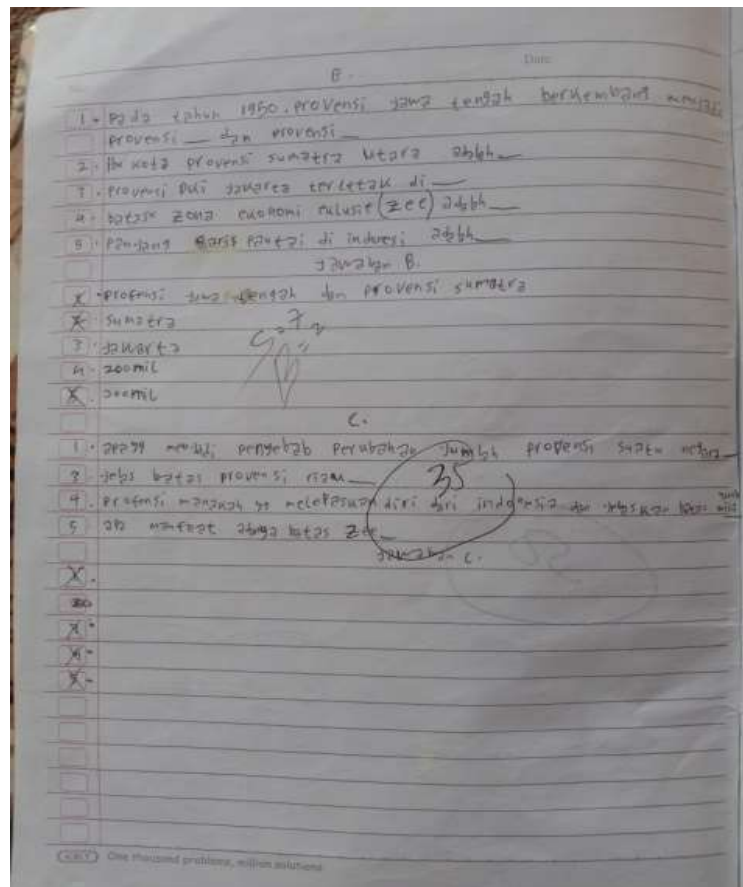 No.
Date
B.
1. Pada tahun 1950. Provensi Jawa tengah berkembang menjadi
provensi __ dan provensi __
2. ibu kota provensi sumatra utara adalah __
3. Provensi DKI Jakarta terletak di __
4. batas zona ekonomi eklusif (zee) adalah __
5. Panjang garis pantai di indonesi adalah __
Jawaban B.
1. profensi jawa tengah dan provensi sumatra
2. sumatra
3. jakarta
4. 200 mil
5. 200 mil
C.
1. apa yg menjadi penyebab perubahan jumlah provensi suatu negara __
3. jelas batas provensi riau __
35
4. profensi manakah yg melepaskan diri dari indonesia dan jelaskan
5. apa manfaat adanya batas zee __
jawaban C.
50
KIKY One thousand problems, million solutions